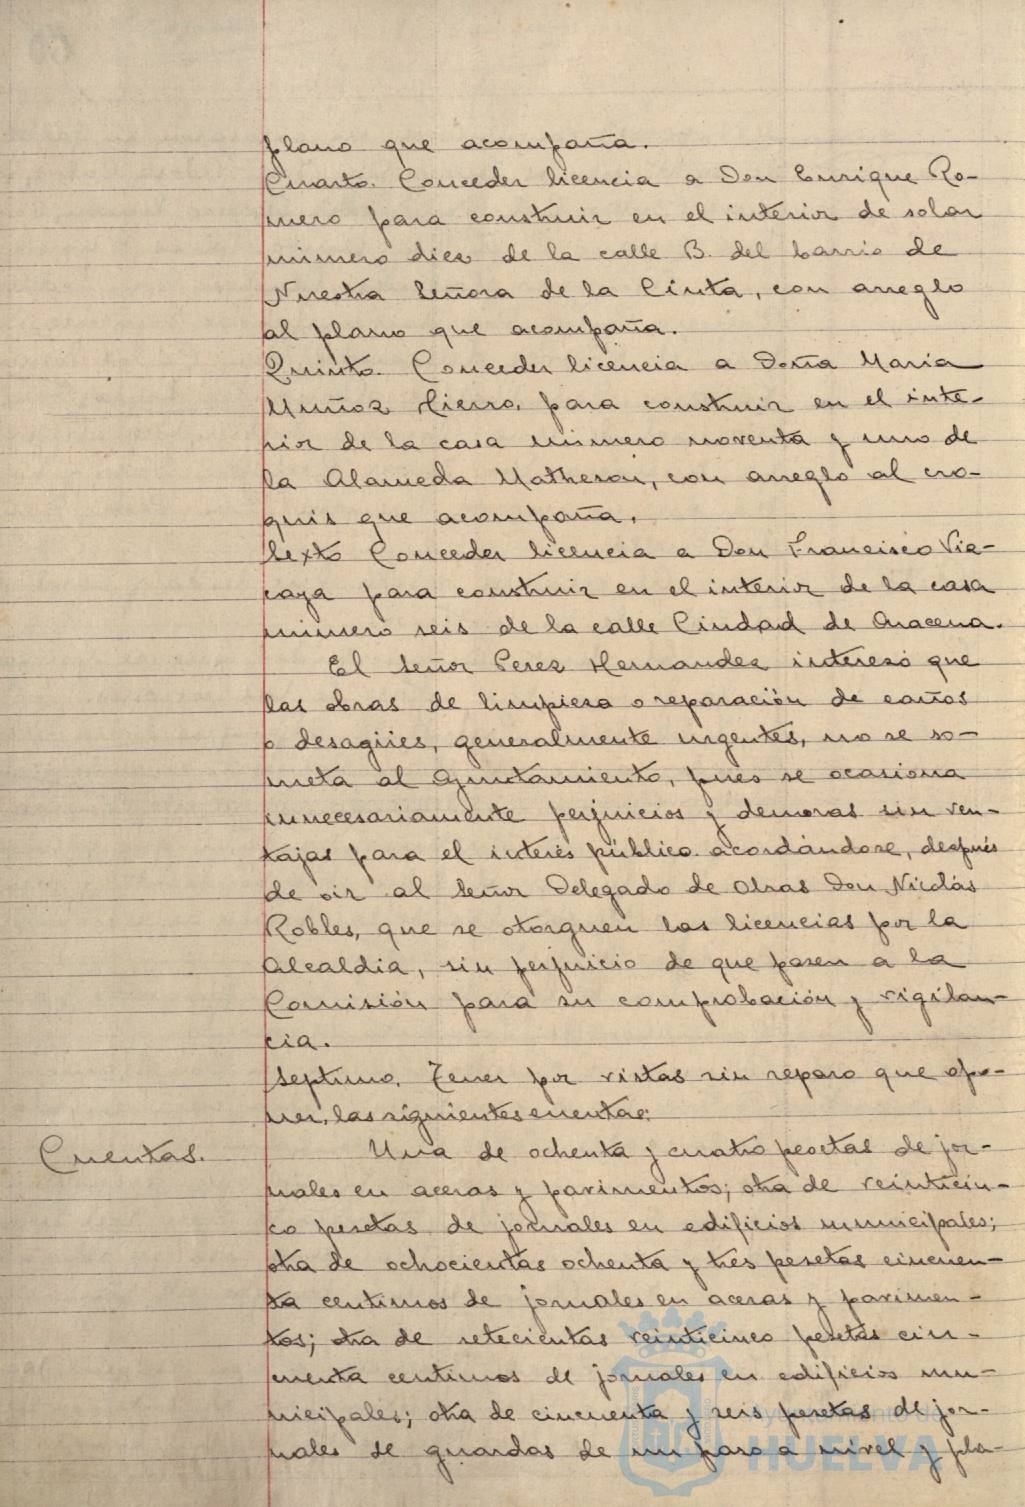 plano que acompaña.
Cuarto. Conceder licencia a Don Enrique Ro-
mero para construir en el interior de solar
número diez de la calle B. del barrio de
Nuestra Señora de la Cinta, con arreglo
al plano que acompaña.
Quinto. Conceder licencia a Doña María
Muñoz Hierro, para construir en el inte-
rior de la casa número noventa y uno de
la Alameda Matheson, con arreglo al cro-
quis que acompaña.
Sexto Conceder licencia a Don Francisco Viz-
caya para construir en el interior de la casa
número seis de la calle Ciudad de Aracena.
El Señor Perez Hernandez interesó que
las obras de limpieza o reparación de caños
o desagües, generalmente urgentes, no se so-
meta al Ayuntamiento, pues se ocasiona
innecesariamente perjuicios y demoras sin ven-
tajas para el interés público acordándose, después
de oir al Señor Delegado de Obras Don Nicolás
Robles, que se otorguen las licencias por la
Alcaldia, sin perjuicio de que pasen a la
Comisión para su comprobación y vigilan-
cia.
Septimo. Tener por vistas sin reparo que opo-
ner, las siguientes cuentas:
Cuentas. Una de ochenta y cuatro pesetas de jor-
nales en aceras y pavimentos; otra de veinticin-
co pesetas de jornales en edificios municipales;
otra de ochocientas ochenta y tres pesetas cincuen-
ta centimos de jornales en aceras y pavimen-
tos; otra de setecientas veinticinco pesetas cin-
cuenta centimos de jornales en edificios mu-
nicipales; otra de cincuenta y seis pesetas de jor-
nales de guardas de un paso a nivel y pla-
Ayuntamiento de
HUELVA